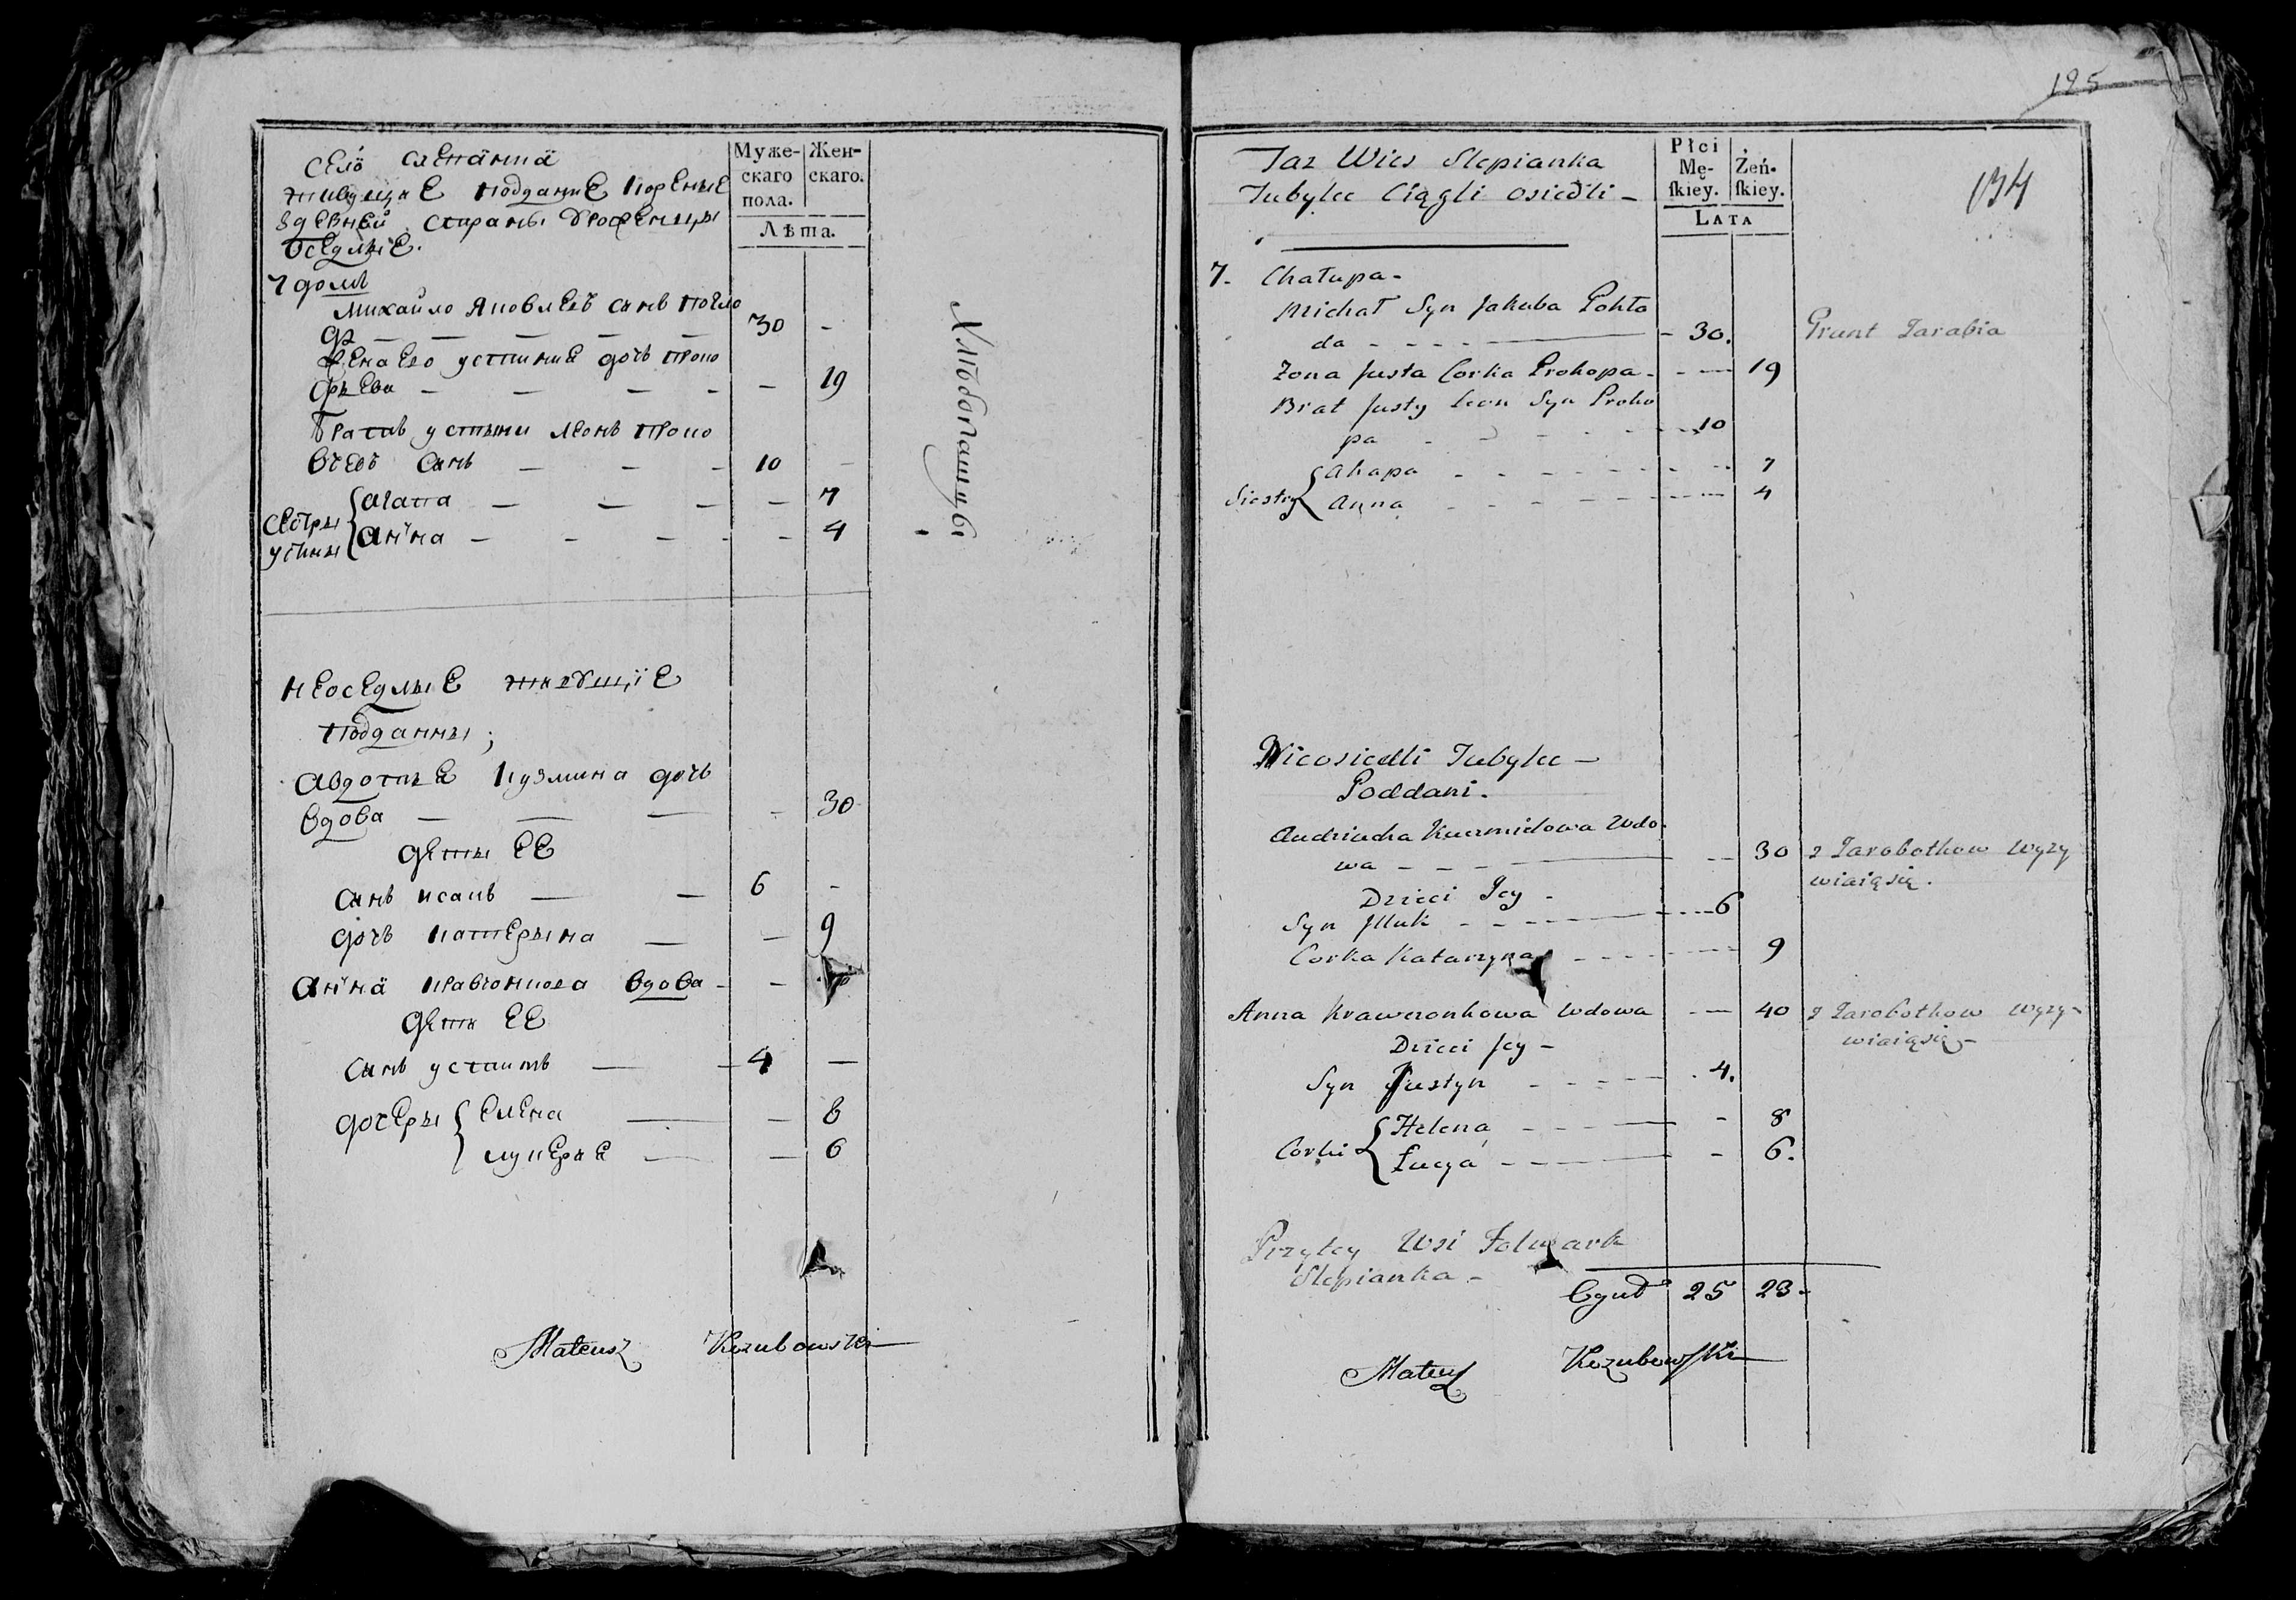 Село слепянка
живущие подданые кореные
здевней стараны уроженцы
оседлые.
Муже-
скаго
пола.
Жен-
скаго.
Лѣта.
7 домъ
михайло яковлевъ синъ покло
дъ — — — — 30 -
жена его устиния дочь проко
фьева — — — - — 19
Братъ устыни леонъ проко
вчевъ синъ — — - 10 -
сестры устины
агапа — — - — 7
анна — - — - - 4
Хлѣбопашцы
неоседлые живущіе
подданны;
авдотье кузмина дочь
вдова — — — - 30
дети ее
синъ исакъ — — 6 -
дочь катерына — — 9
анна кравчонкова вдова - -
дети ее
синъ устинъ — 4 —
дочеры
елена — — 8
лукерые — — 6
Mateusz Kozubowski
125
134
Taz Wies Slepianka
Tubylce Ciągli osiedli -
Płci
Mę-
skiey.
Żeń-
skiey.
LATA
7. Chałupa -
Michał Syn Jakuba Pokło
da - - - - 30. Grunt Zarabia
Zona Justa Corka Prokopa - - - 19
Brat Justy Leon Syn Proko
pa - - - - 10
Siostry
Ahapa - - - - 7
Anna - - - - 4
Nieosiedli Tubylce -
Poddani.
Audziucha Kuzmidowa Wdo
wa - - - - 30 z Zarobotkow Wyzy
wiaią się.
Dzieci Jey -
Syn Illuk - - - - 6
Corka Katarzyna - - - 9
Anna Krawczonkowa Wdowa - - 40 z Zarobotkow wyzy-
wiaią się -
Dzieci Jey -
Syn Justyn - - - 4.
Corki
Helena - - - - 8
Łucya - - - - 6.
Przytey Wsi Folwark
Slepianka -
Oguł 25 23 -
Mateusz Kozubowski